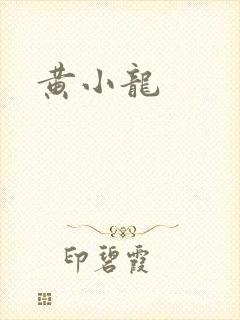 黄小龍
印碧霞